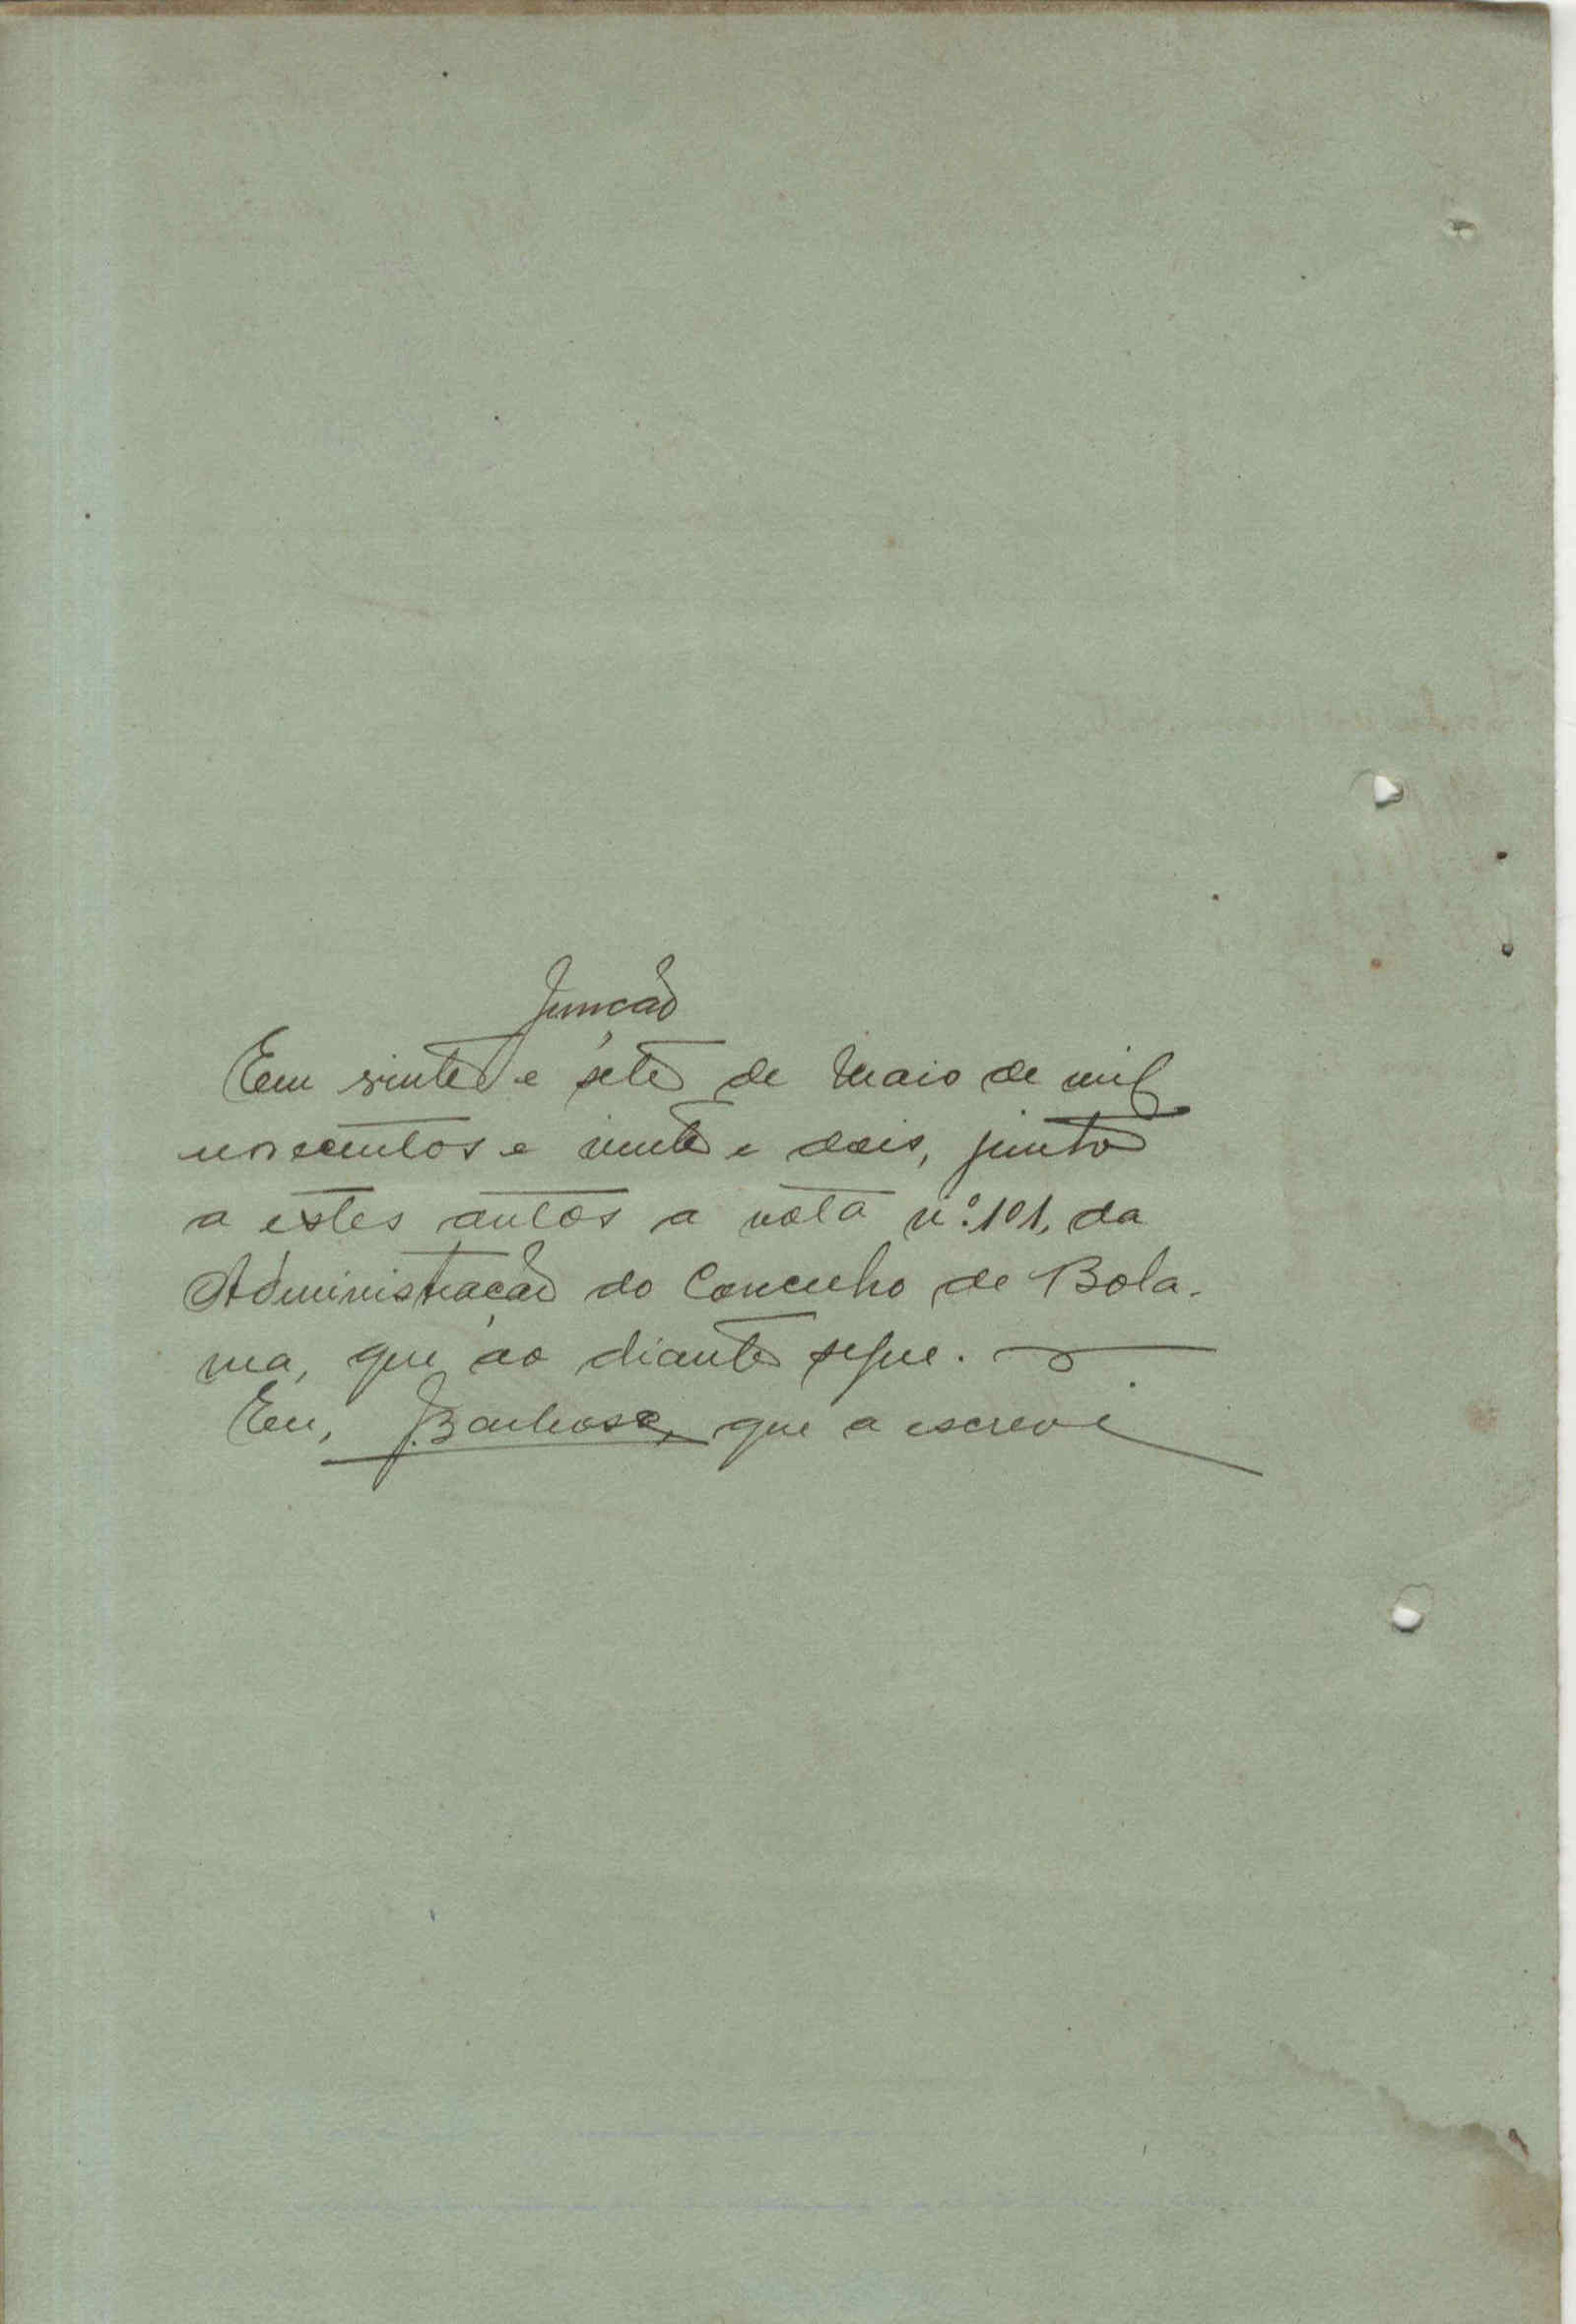 Junção
Em vinte e sete de Maio de mil
novecentos e vinte e dois, junto
a estes autos a nota n.º 101, da
Administração do Concelho de Bola-
ma, que ao diante segue.
Eu, Barbosa, que a escrevi